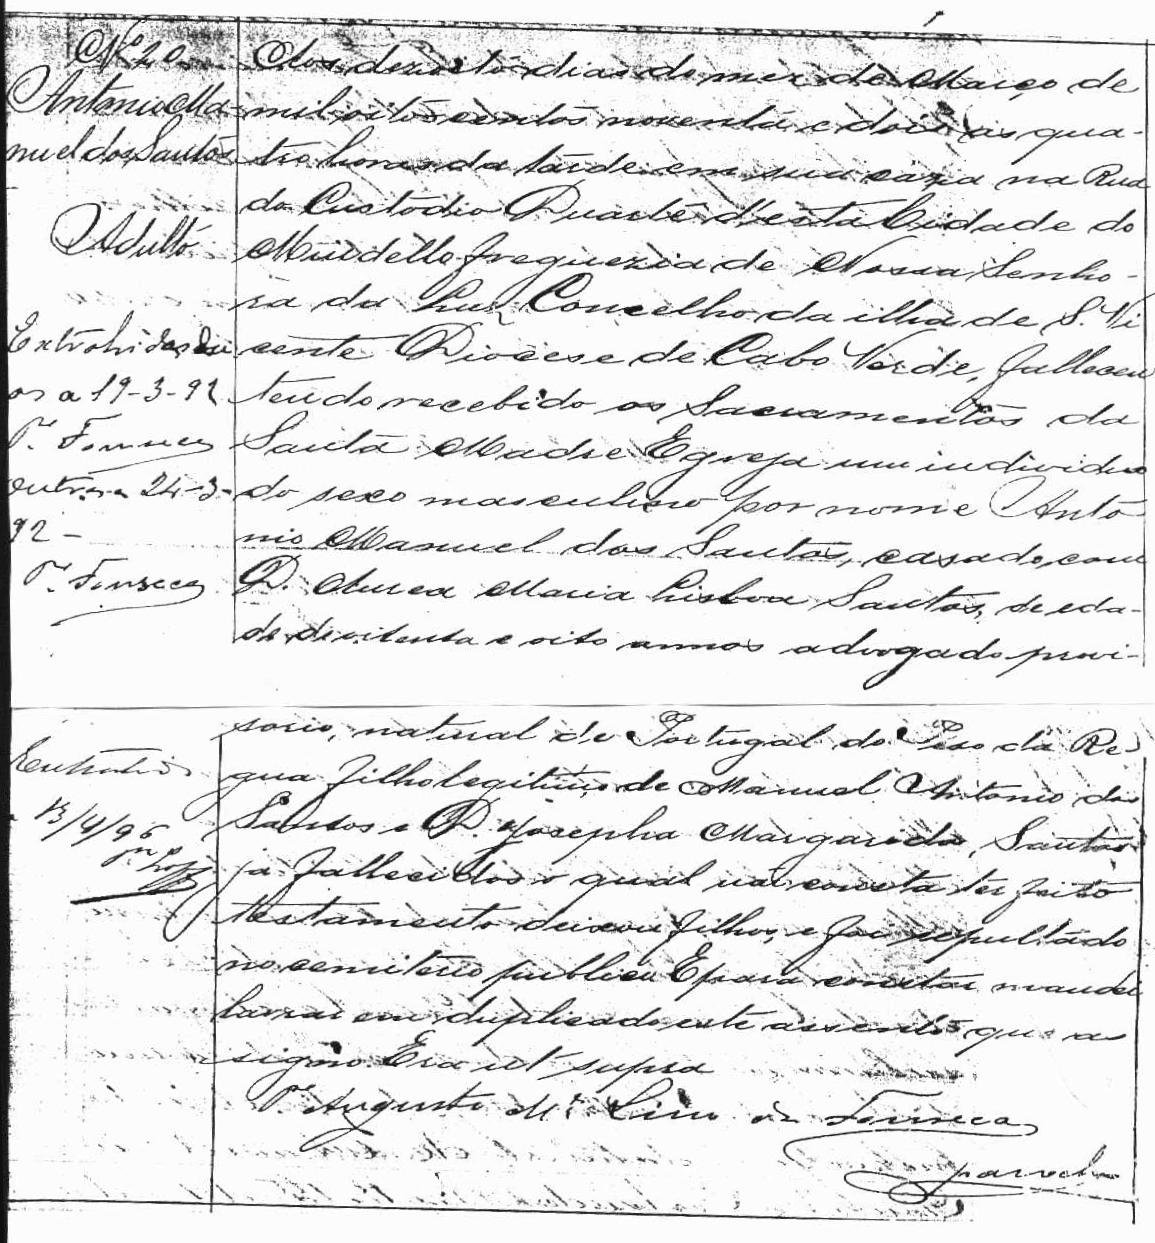 Nº 20
Antonio Ma-
nuel dos Santos
Adulto
Extrahidas du
as a 19-3-92
P.e Fonseca
outra a 24-3-
92-
P.e Fonseca
Aos dezoito dias do mez de Março de
mil oitocentos noventa e dois as qua-
tro horas da tarde em sua caza na Rua
do Custodio Duarte desta Cidade do
Mindello freguezia de Nossa Senho-
ra da Luz Concelho da ilha de S. Vi
cente Diocese de Cabo Verde, falleceu
tendo recebido os Sacramentos da
Santa Madre Egreja um individuo
do sexo masculino por nome Anto
nio Manuel dos Santos, casado com
D. Aurea Maria Lisboa Santos, de eda-
de de oitenta e oito annos advogado provi-
13/4/96
sorio, natural de Portugal do Peso da Re-
gua filho legitimo de Manuel Antonio dos
Santos e D. Josepha Margarida Santos
ja fallecidos o qual não consta ter feito
testamento deixou filhos, e foi sepultado
no cemiterio publico E para constar mandei
lavrar em duplicado este assento que as
signo Era ut supra
P.e Augusto M.a Lino da Fonseca
parocho